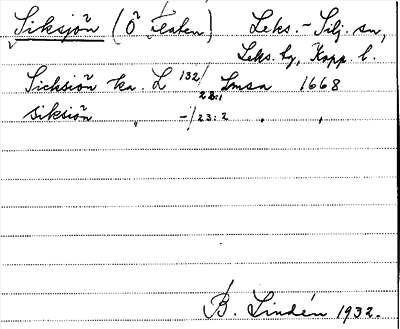 Siksjön (Ö Leksen) Leks.- Silj. sn,
Leks. by, Kopp. l.
Sicksiön ka. L 132/22:1 Lmsa 1668
Siksiön " -/23:2 " "
B. Lindén 1932.